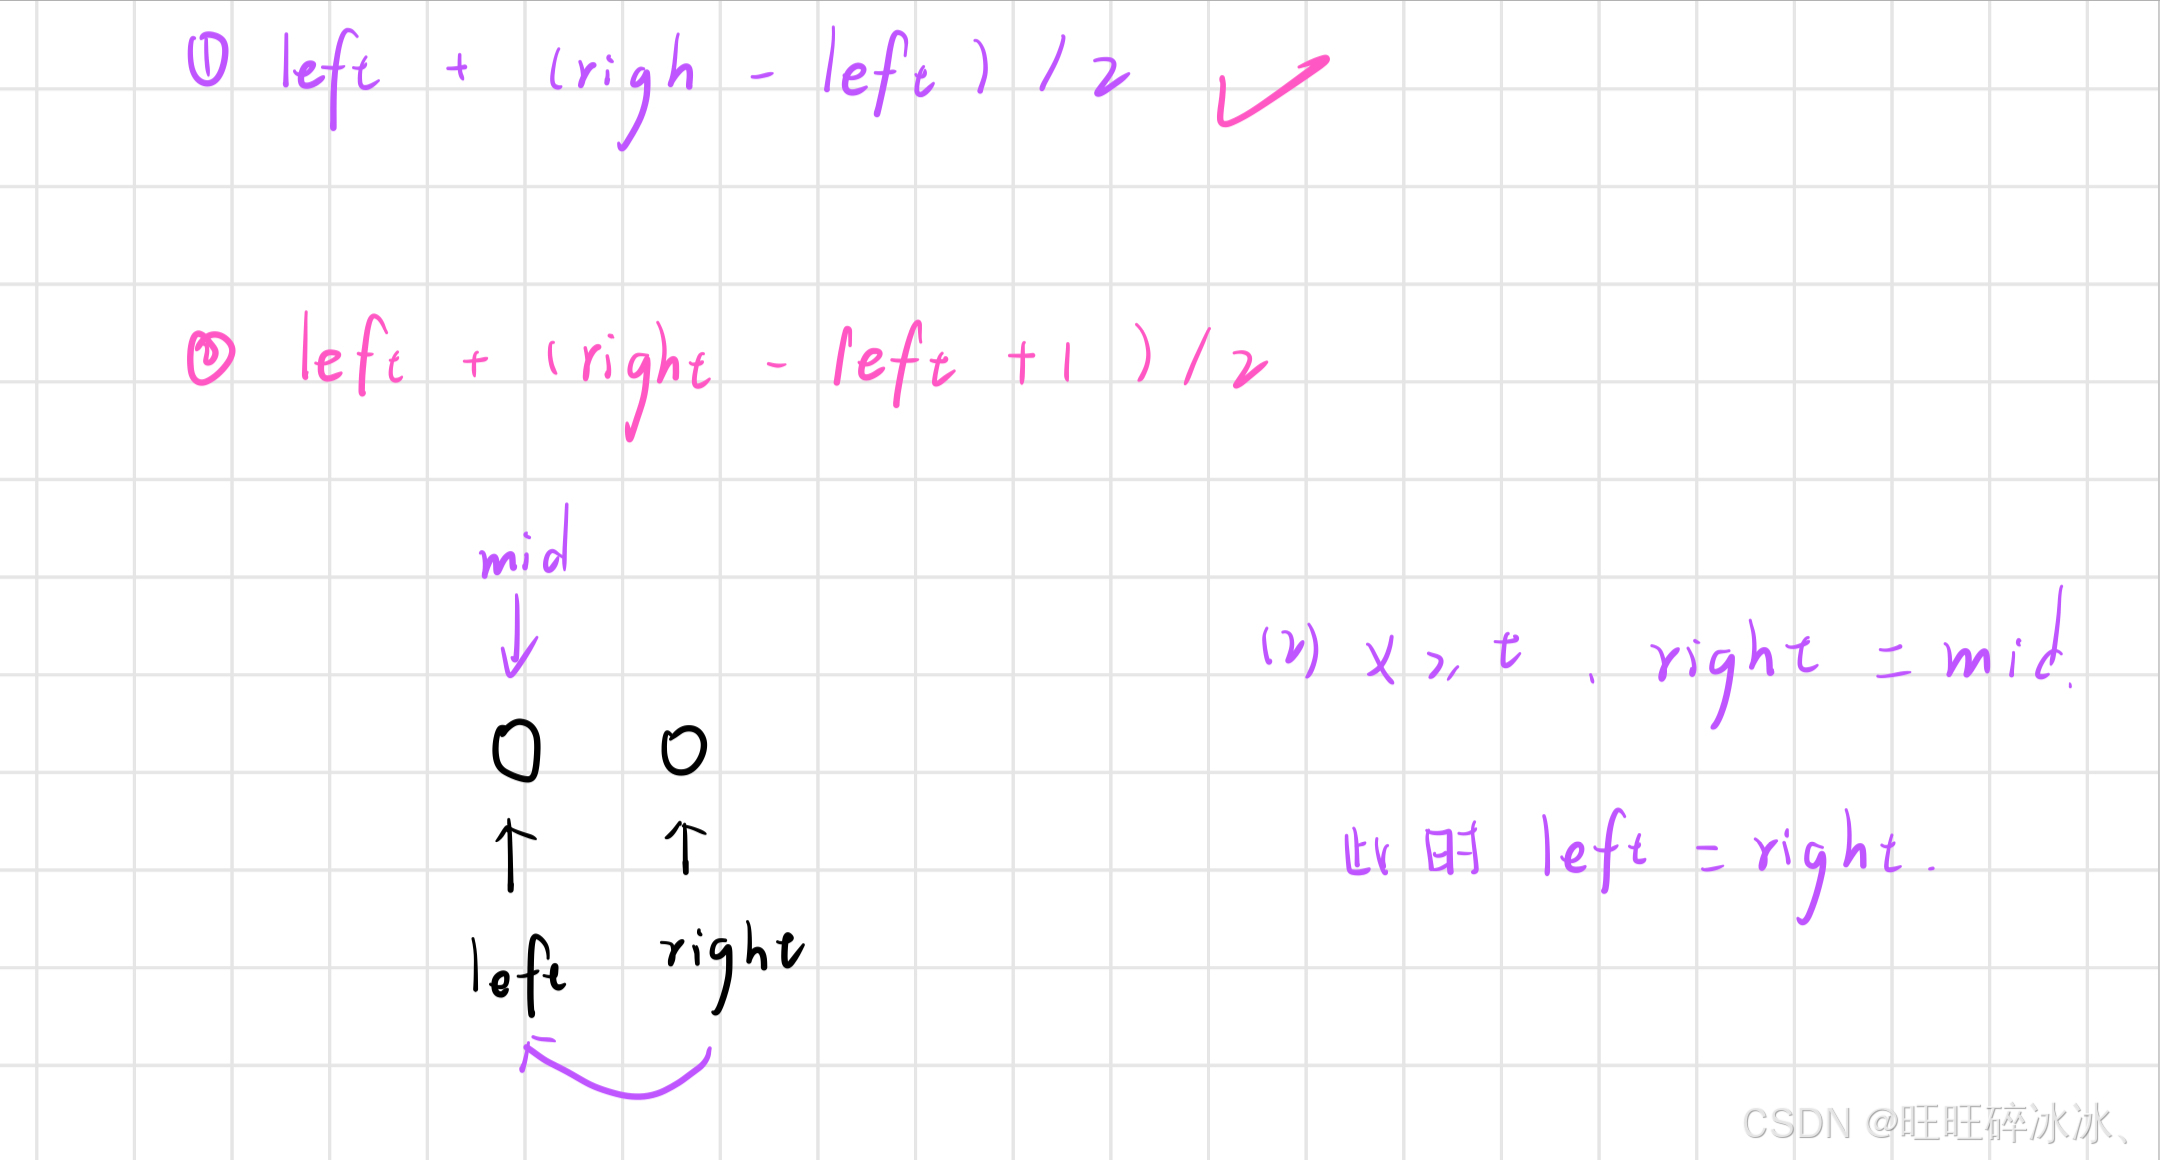 ① left + (righ - left) / 2
② left + (right - left + 1) / 2
mid
(2) x ≥ t、right = mid.
此时 left = right.
left right
CSDN @旺旺碎冰冰、